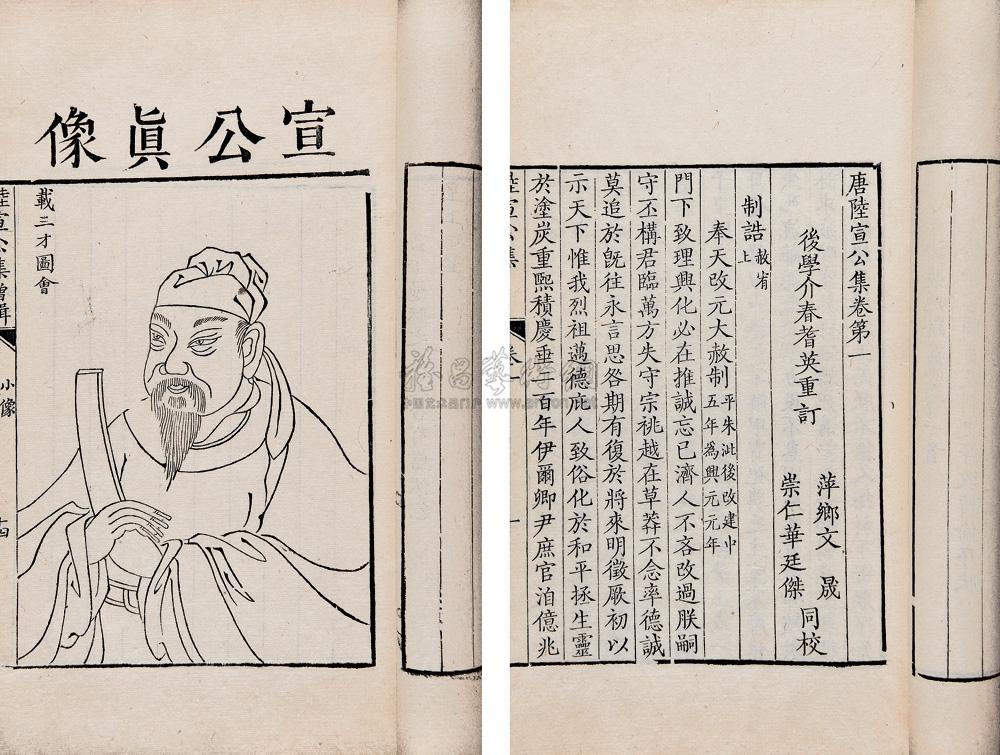 宣公眞像
載三才圖會
陸宣公集增輯
小像
十四
唐陸宣公集卷第一
後學介春耆英重訂
萍鄉文晟
崇仁華廷傑
同校
制誥赦宥上
奉天改元大赦制平朱泚後改建中五年爲興元元年
門下致理興化必在推誠忘己濟人不吝改過朕嗣
守丕構君臨萬方失守宗祧越在草莽不念率德誠
莫追於旣往永言思咎期有復於將來明徵厥初以
示天下惟我烈祖邁德庇人致俗化於和平拯生靈
於塗炭重熙積慶垂二百年伊爾卿尹庶官洎億兆
陸宣公集
卷一
一